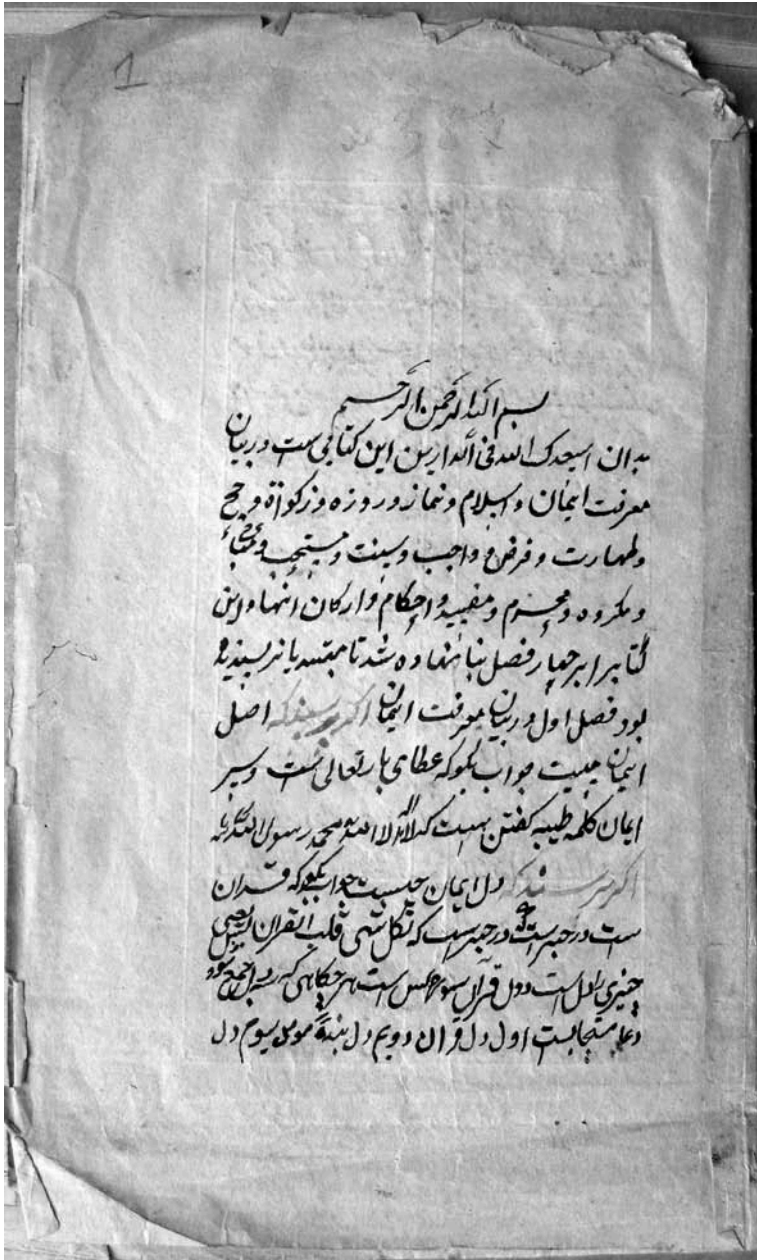 1
بسم الله الرحمن الرحيم
بدان اسعدك الله فى الدارين اين كتابى ست در بيان
معرفت ايمان و اسلام و نماز و روزه و زكواة و حج
و طهارت و فرض و واجب و سنت و مستحب و
و مكروه و محرم و مفسد و احكام و اركان انها و اين
كتابرا بر چهار فصل بنا نهاده شد تا مبتديانرا پسنديده
بود فصل اول در بيان معرفت ايمان اكر پرسند كه اصل
ايمان چيست جواب بكو كه عطاى بارتعالى ست و سر
ايمان كلمه طيبه كفتن است كه لا اله الا الله محمد رسول الله
اكر پرسند كه دل ايمان چيست جواب بكو كه قران
ست در خبر است كه لكل شى قلب القران يس يعنى
چيزى را دل است و دل قران سوره يس است هر جكاهى كه سه دل جمع شود
دعا مستجابست اول دل قران دويم دل بنده مومن سيوم دل